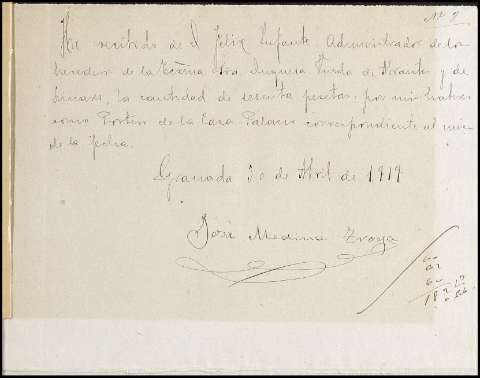 Nº 2
He recibido de D. Felix Infante Administrador de los
herederos de la Excma Sra. Duquesa Viuda de Abrantes y de
Linares, la cantidad de sesenta pesetas, por mi haber
como Portero de la Casa-Palacio correspondiente al mes
de la fecha.
Granada 30 de Abril de 1919
José Medina